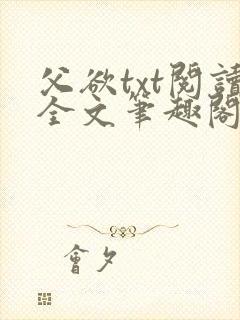 父欲txt閱讀
全文筆趣閣
會夕